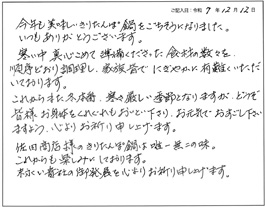 ご記入日：令和 7 年 12 月 12 日
今年も美味しいきりたんぽ鍋をごちそうになりました。
いつもありがとうございます。
寒い中 真心こめて 準備くださった 食材の数々を、
順序どおり調理し、家族皆で にぎやかに 有難くいただ
いております。
これからまた冬本番、寒さ厳しい季節となりますが、どうぞ
皆様 お身体をくれぐれもおいといで下さり、お元気でお過ごし下さい
ますよう、心よりお祈り申し上げます。
佐田商店様のきりたんぽ鍋は唯一無二の味。
これからも楽しみにしております。
末広い貴社の御発展を心よりお祈り申し上げます。